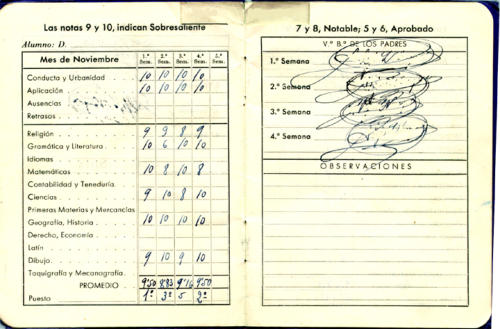 Las notas 9 y 10, indican Sobresaliente
Alumno: D.
Mes de Noviembre 1.ª Sem. 2.ª Sem. 3.ª Sem. 4.ª Sem. 5.ª Sem.
Conducta y Urbanidad 10 10 10 10
Aplicación 10 10 10 10
Ausencias
Retrasos
Religión 9 9 8 9
Gramática y Literatura 10 6 10 10
Idiomas
Matemáticas 10 8 10 8
Contabilidad y Teneduría
Ciencias 9 10 8 10
Primeras Materias y Mercancías
Geografía, Historia 10 10 10 10
Derecho, Economía
Latín
Dibujo 9 10 9 10
Taquigrafía y Mecanografía
PROMEDIO 9'50 9'83 9'16 9'50
Puesto 1º 3º 5 2º
7 y 8, Notable; 5 y 6, Aprobado
V.º B.º DE LOS PADRES
1.ª Semana
2.ª Semana
3.ª Semana
4.ª Semana
OBSERVACIONES